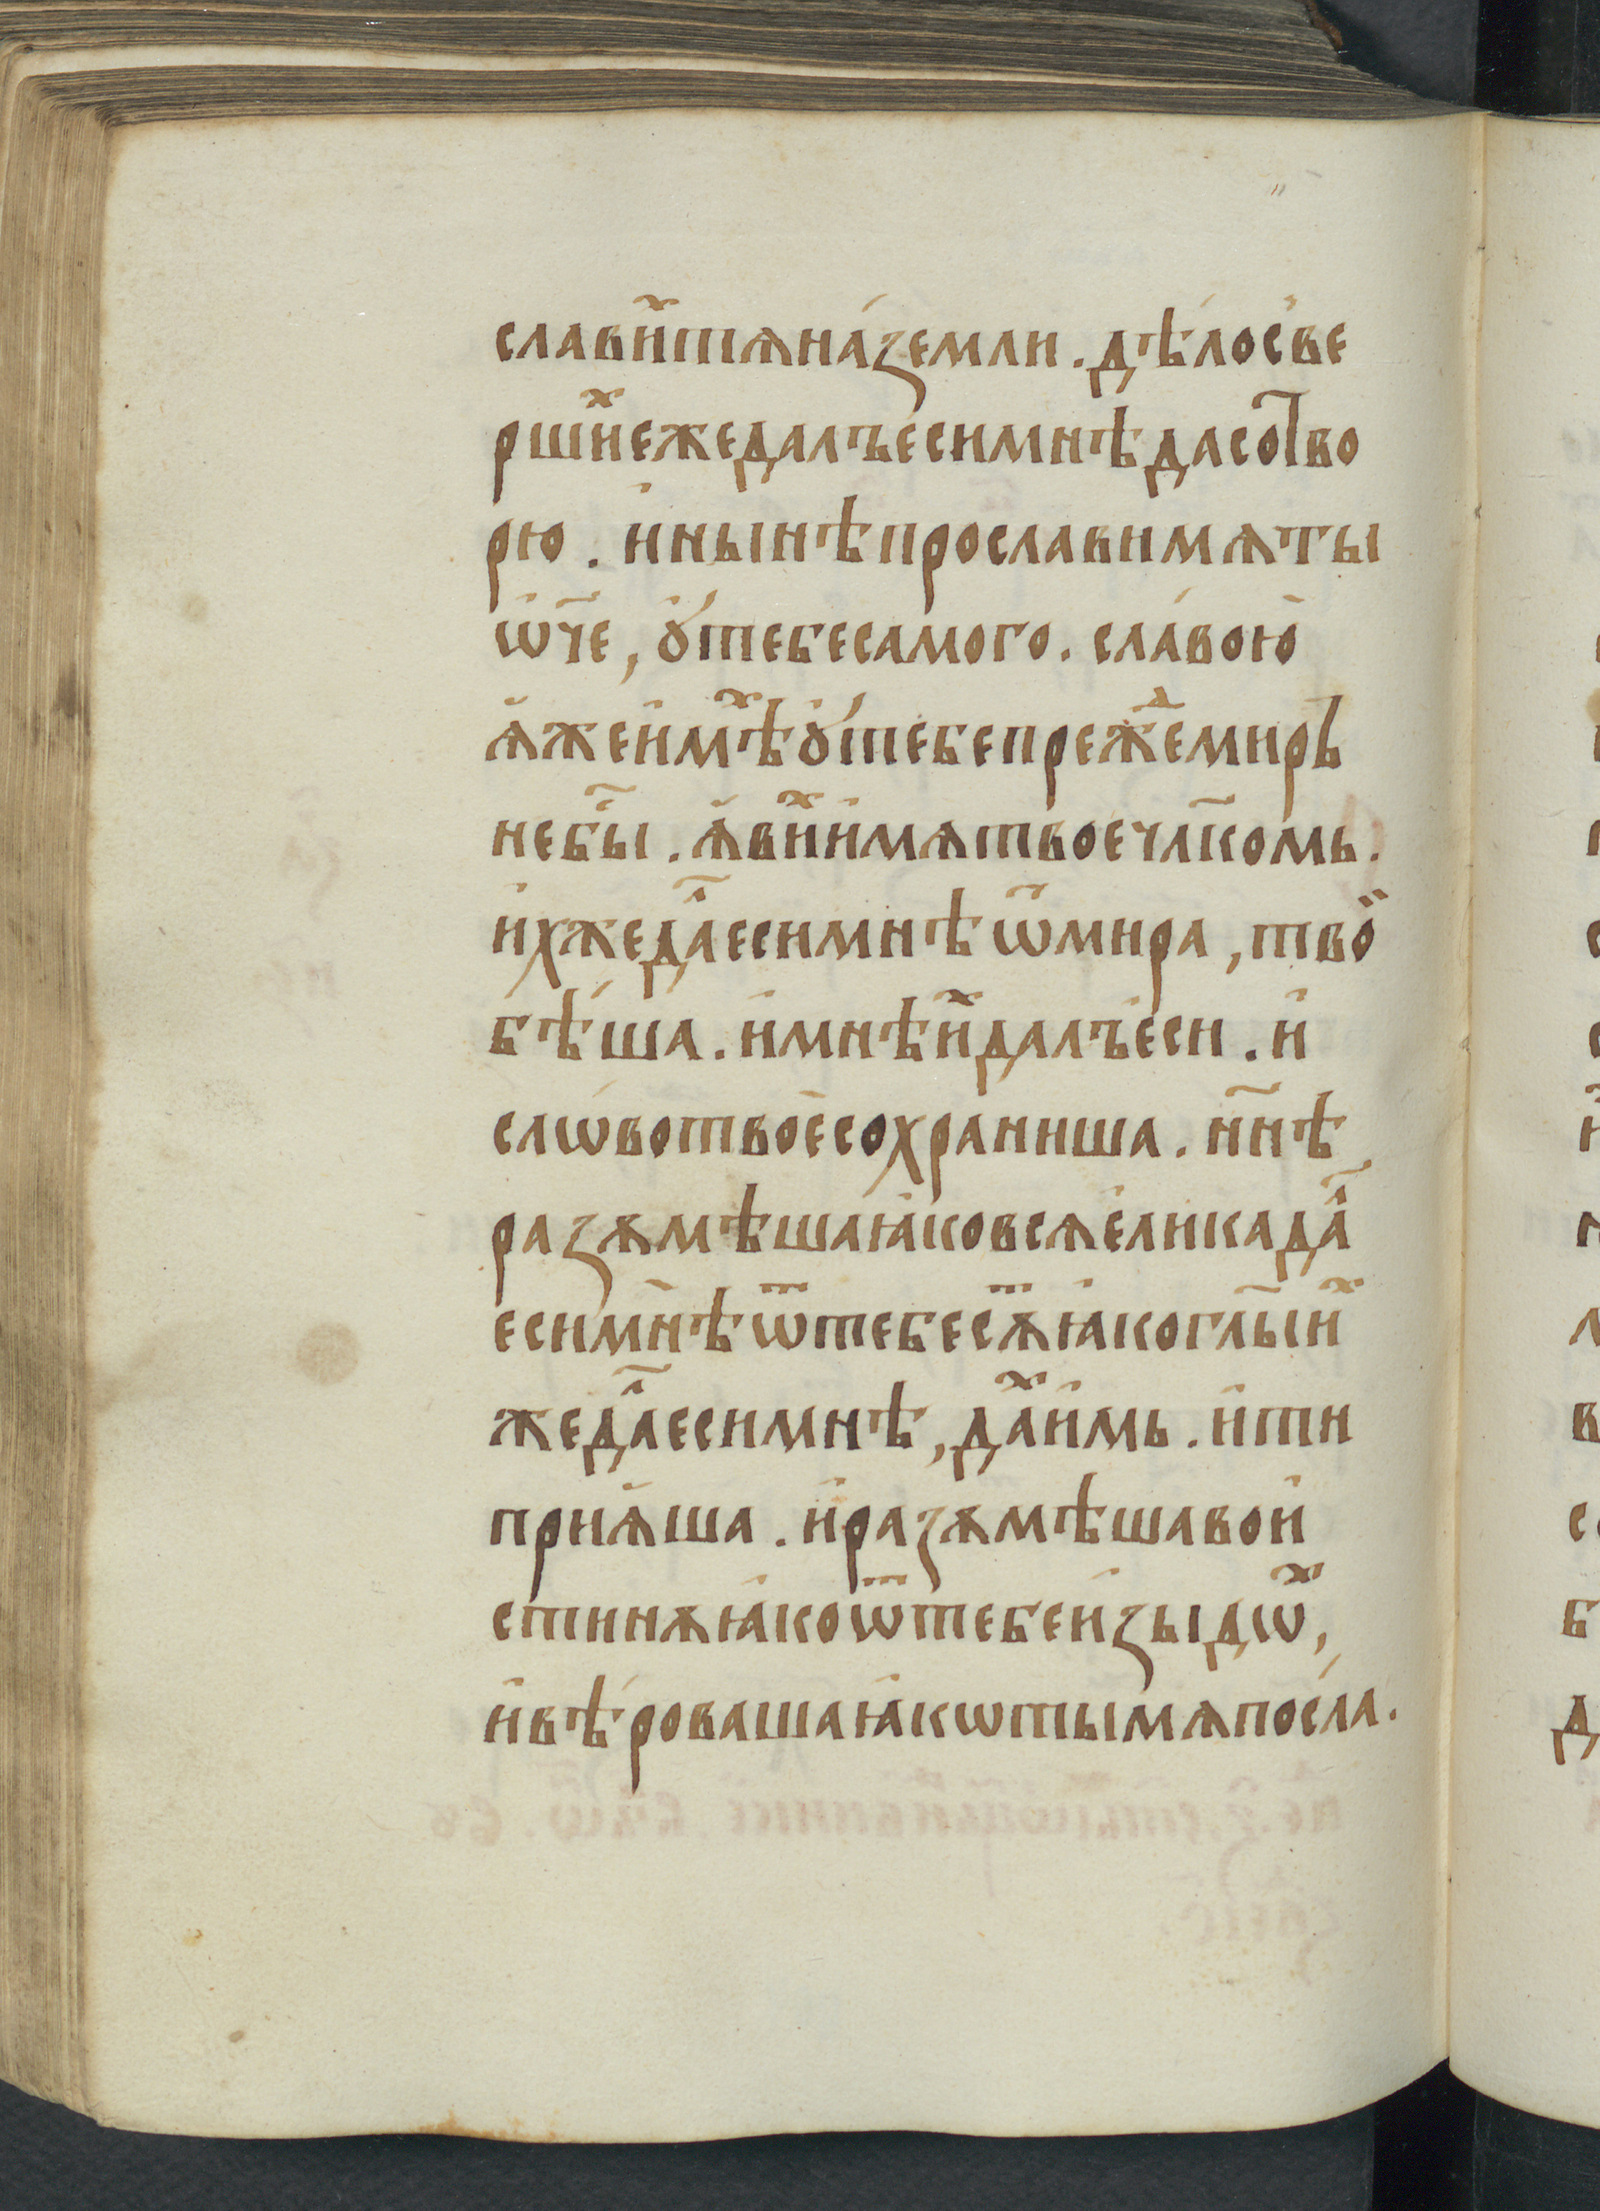 славиⷯ҇тѧна́земли . дѣ́лос̾ве
ршиⷯ҇ежедалъесимнѣдасотво
рю . и҆нынѣпрославимѧты
ѡ҆ч҃е , ꙋ҆́тебесамого . сла́вою҆
ѧ҆жеи҆мѣⷯ҇ꙋ҆́тебепрежⷣ҇емиръ
небы҇ⷭ . ѧ҆виⷯ҇и҆мѧтвоечл҃комь .
и҆хжедаⷧ҇есимнѣѿмира , твои҆
бѣ́ша . и҆мнѣи҆ⷯдалъе҆си . и҆
слѡ́вотвое҆сохраниша . нн҃ѣ
разꙋмѣшаꙗ҆ковсѧе҆ликадаⷧ҇
есимнѣѿтебесѧⷮ҇ꙗ҆когл҃ыи҆ⷯ
жедаⷧ҇есимнѣ , даⷯ҇и҆мь . и҆ти
приѧ҆ша . и҆разꙋмѣшавои҆
стинꙋꙗ҆коѿтебеи҆зыдѡⷯ҇ ,
и҆вѣ́ровашаꙗ҆кѡтымѧпосла .